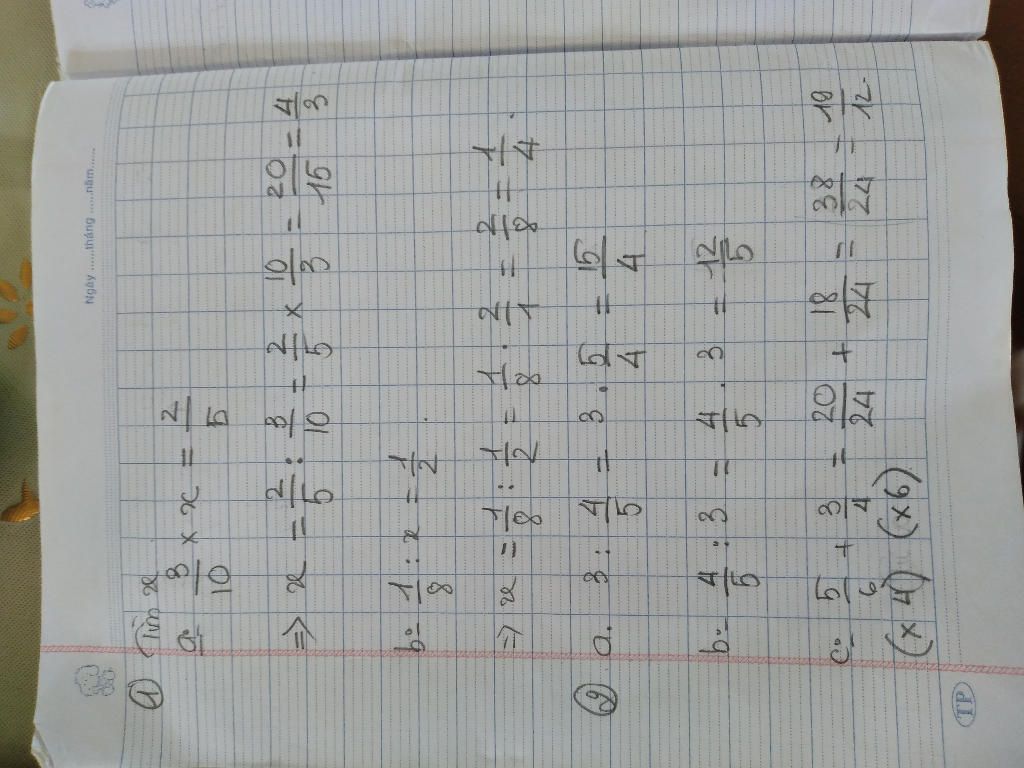 Ngày ......tháng ......năm......
① Tìm x
a- 3/10 × x = 2/5
=> x = 2/5 : 3/10 = 2/5 × 10/3 = 20/15 = 4/3
b- 1/8 : x = 1/2 .
=> x = 1/8 : 1/2 = 1/8 . 2/1 = 2/8 = 1/4 .
② a. 3 : 4/5 = 3 . 5/4 = 15/4
b- 4/5 : 3 = 4/5 . 3 = 12/5
c- 5/6 + 3/4 = 20/24 + 18/24 = 38/24 = 19/12
(×4) (×6)
TP